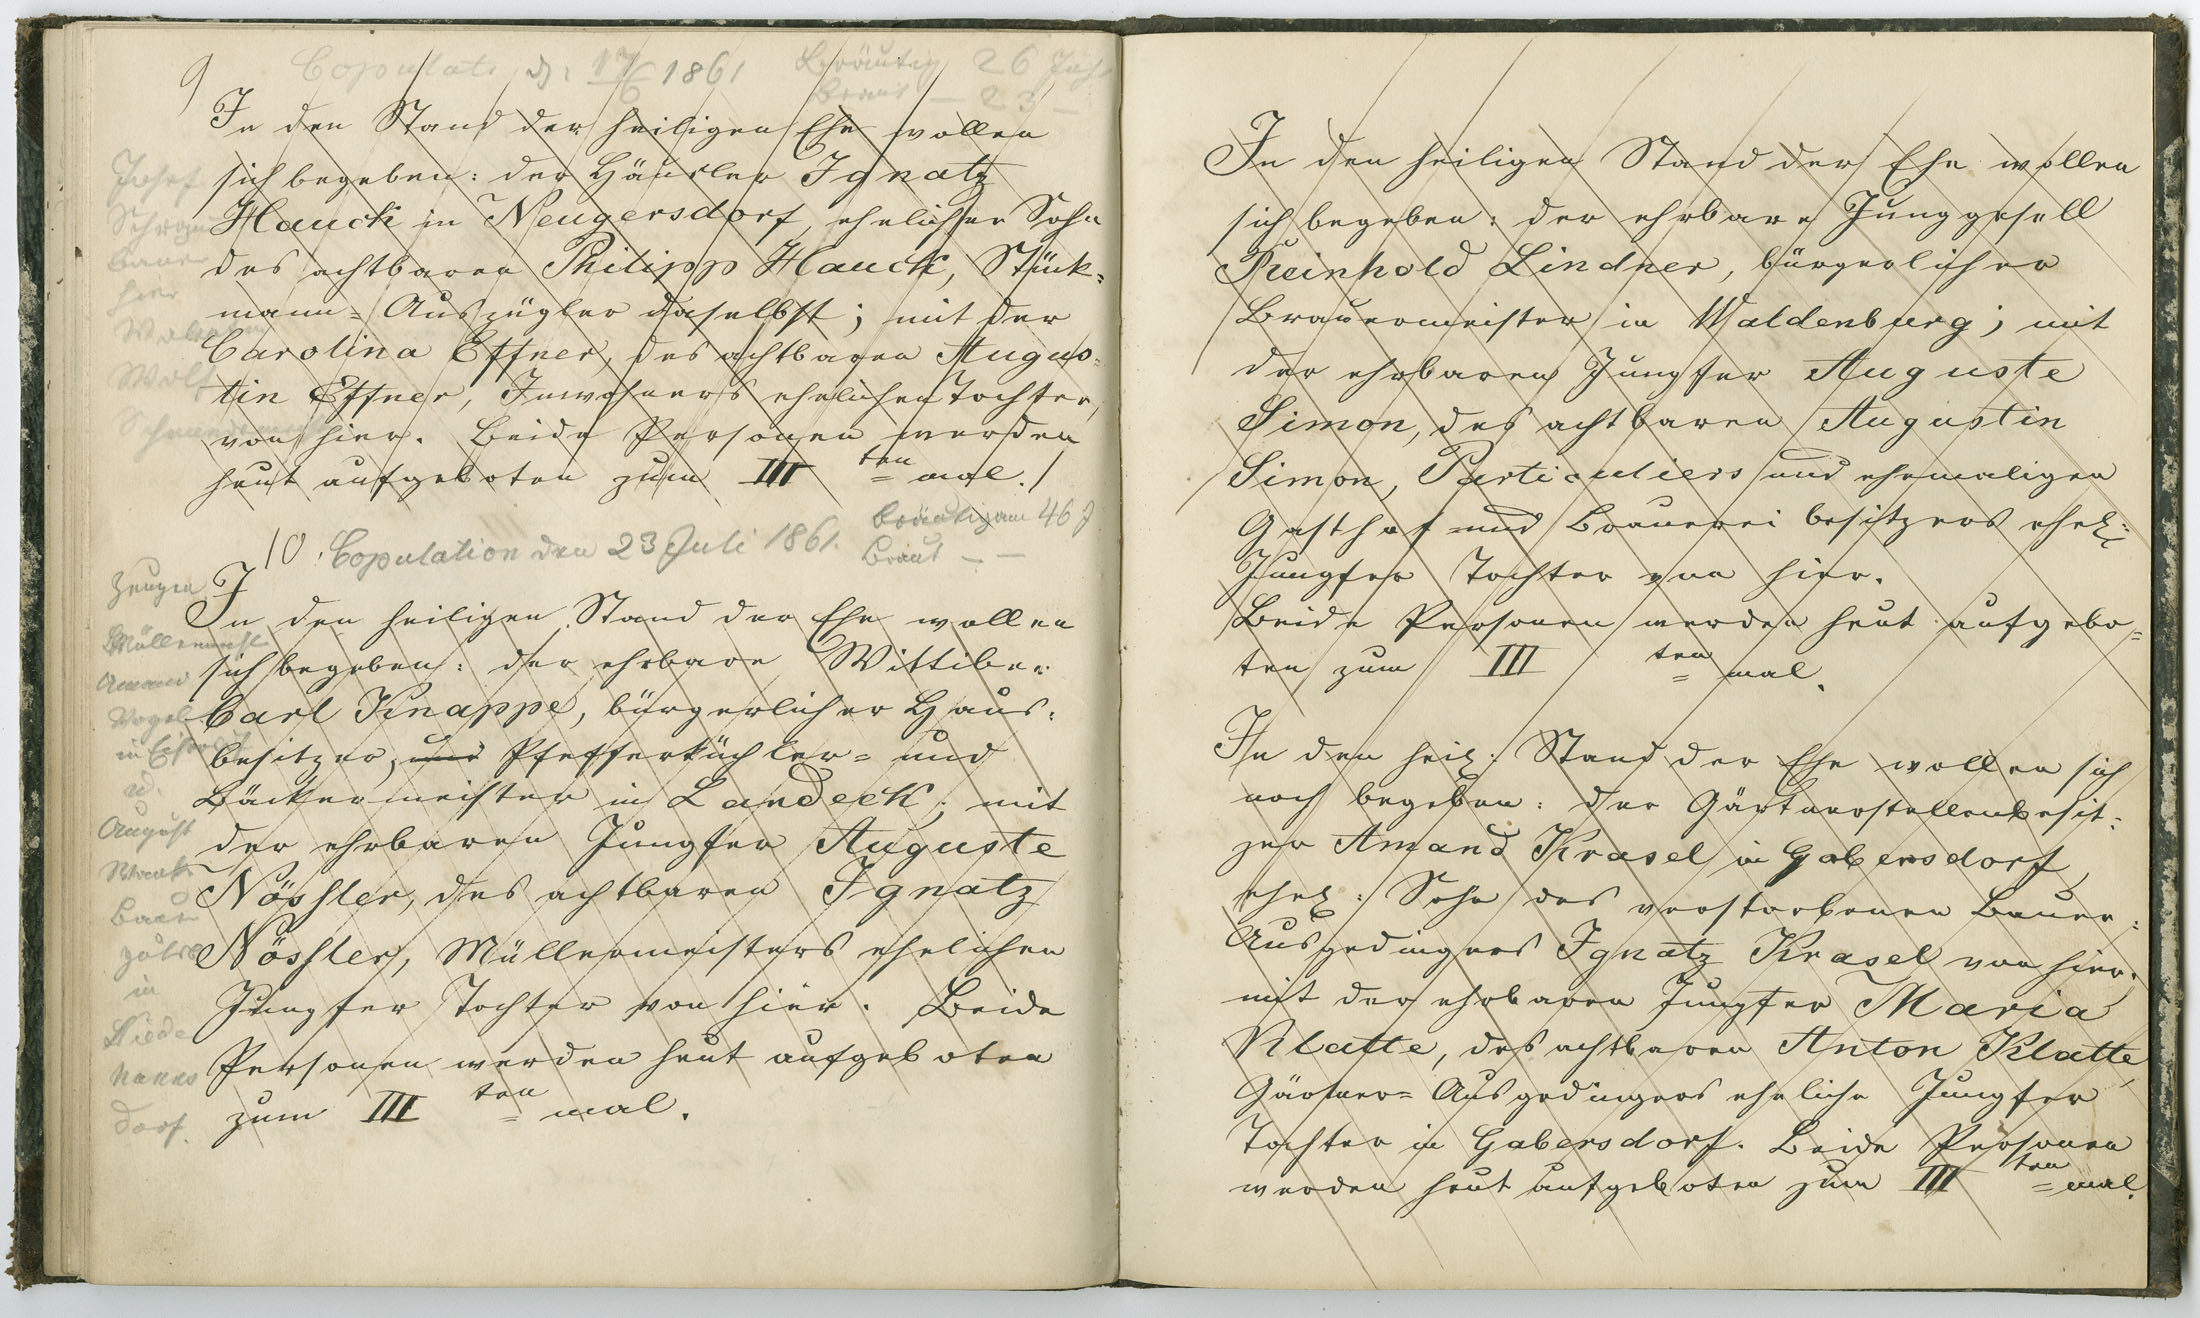 9
Copulat. d: 17/6 1861 Bräutig 26 Jahr
Braut — 23 —
In den Stand der heiligen Ehe wollen
sich begeben: der Häusler Ignatz
Hauck in Neugersdorf, ehelicher Sohn
des achtbaren Philipp Hauck, Stück-
mann-Auszügler daselbst; mit der
Carolina Effner, des achtbaren Augus-
tin Effner, Inwohners ehelichen Tochter,
von hier. Beide Personen werden
heut aufgeboten zum III ten mal.
Josef
Bauer
hier
Wolf
10. Copulation den 23 Juli 1861. Bräutigam 46 J
Braut — —
In den heiligen Stand der Ehe wollen
sich begeben: der ehrbare Wittiber
Carl Knappe, bürgerlicher Haus-
besitzer, und Pfefferküchler- und
Bäckermeister in Landeck; mit
der ehrbaren Jungfer Auguste
Nössler, des achtbaren Ignatz
Nössler, Müllermeisters ehelichen
Jungfer Tochter von hier. Beide
Personen werden heut aufgeboten
zum III ten mal.
Zeugen
Amand
Vogel
in
u.
August
Bauer
in
Niede
hanns
dorf.
In den heiligen Stand der Ehe wollen
sich begeben: der ehrbare Junggesell
Reinhold Lindner, bürgerlicher
Brauermeister in Waldenburg; mit
der ehrbaren Jungfer Auguste
Simon, des achtbaren Augustin
Simon, Particuliers und ehemaligen
Gasthof- und Brauerei besitzers ehel:
Jungfer Tochter von hier.
Beide Personen werden heut aufgebo-
ten zum III ten mal.
In den heil: Stand der Ehe wollen sich
noch begeben: der Gärtnerstellenbesit-
zer Amand Krasel in Gabersdorf,
ehel: Sohn des verstorbenen Bauer-
Ausgedingers Ignatz Krasel von hier;
mit der ehrbaren Jungfer Maria
Klatte, des achtbaren Anton Klatte,
Gärtner-Ausgedingers eheliche Jungfer
Tochter in Gabersdorf. Beide Personen
werden heut aufgeboten zum III ten mal.